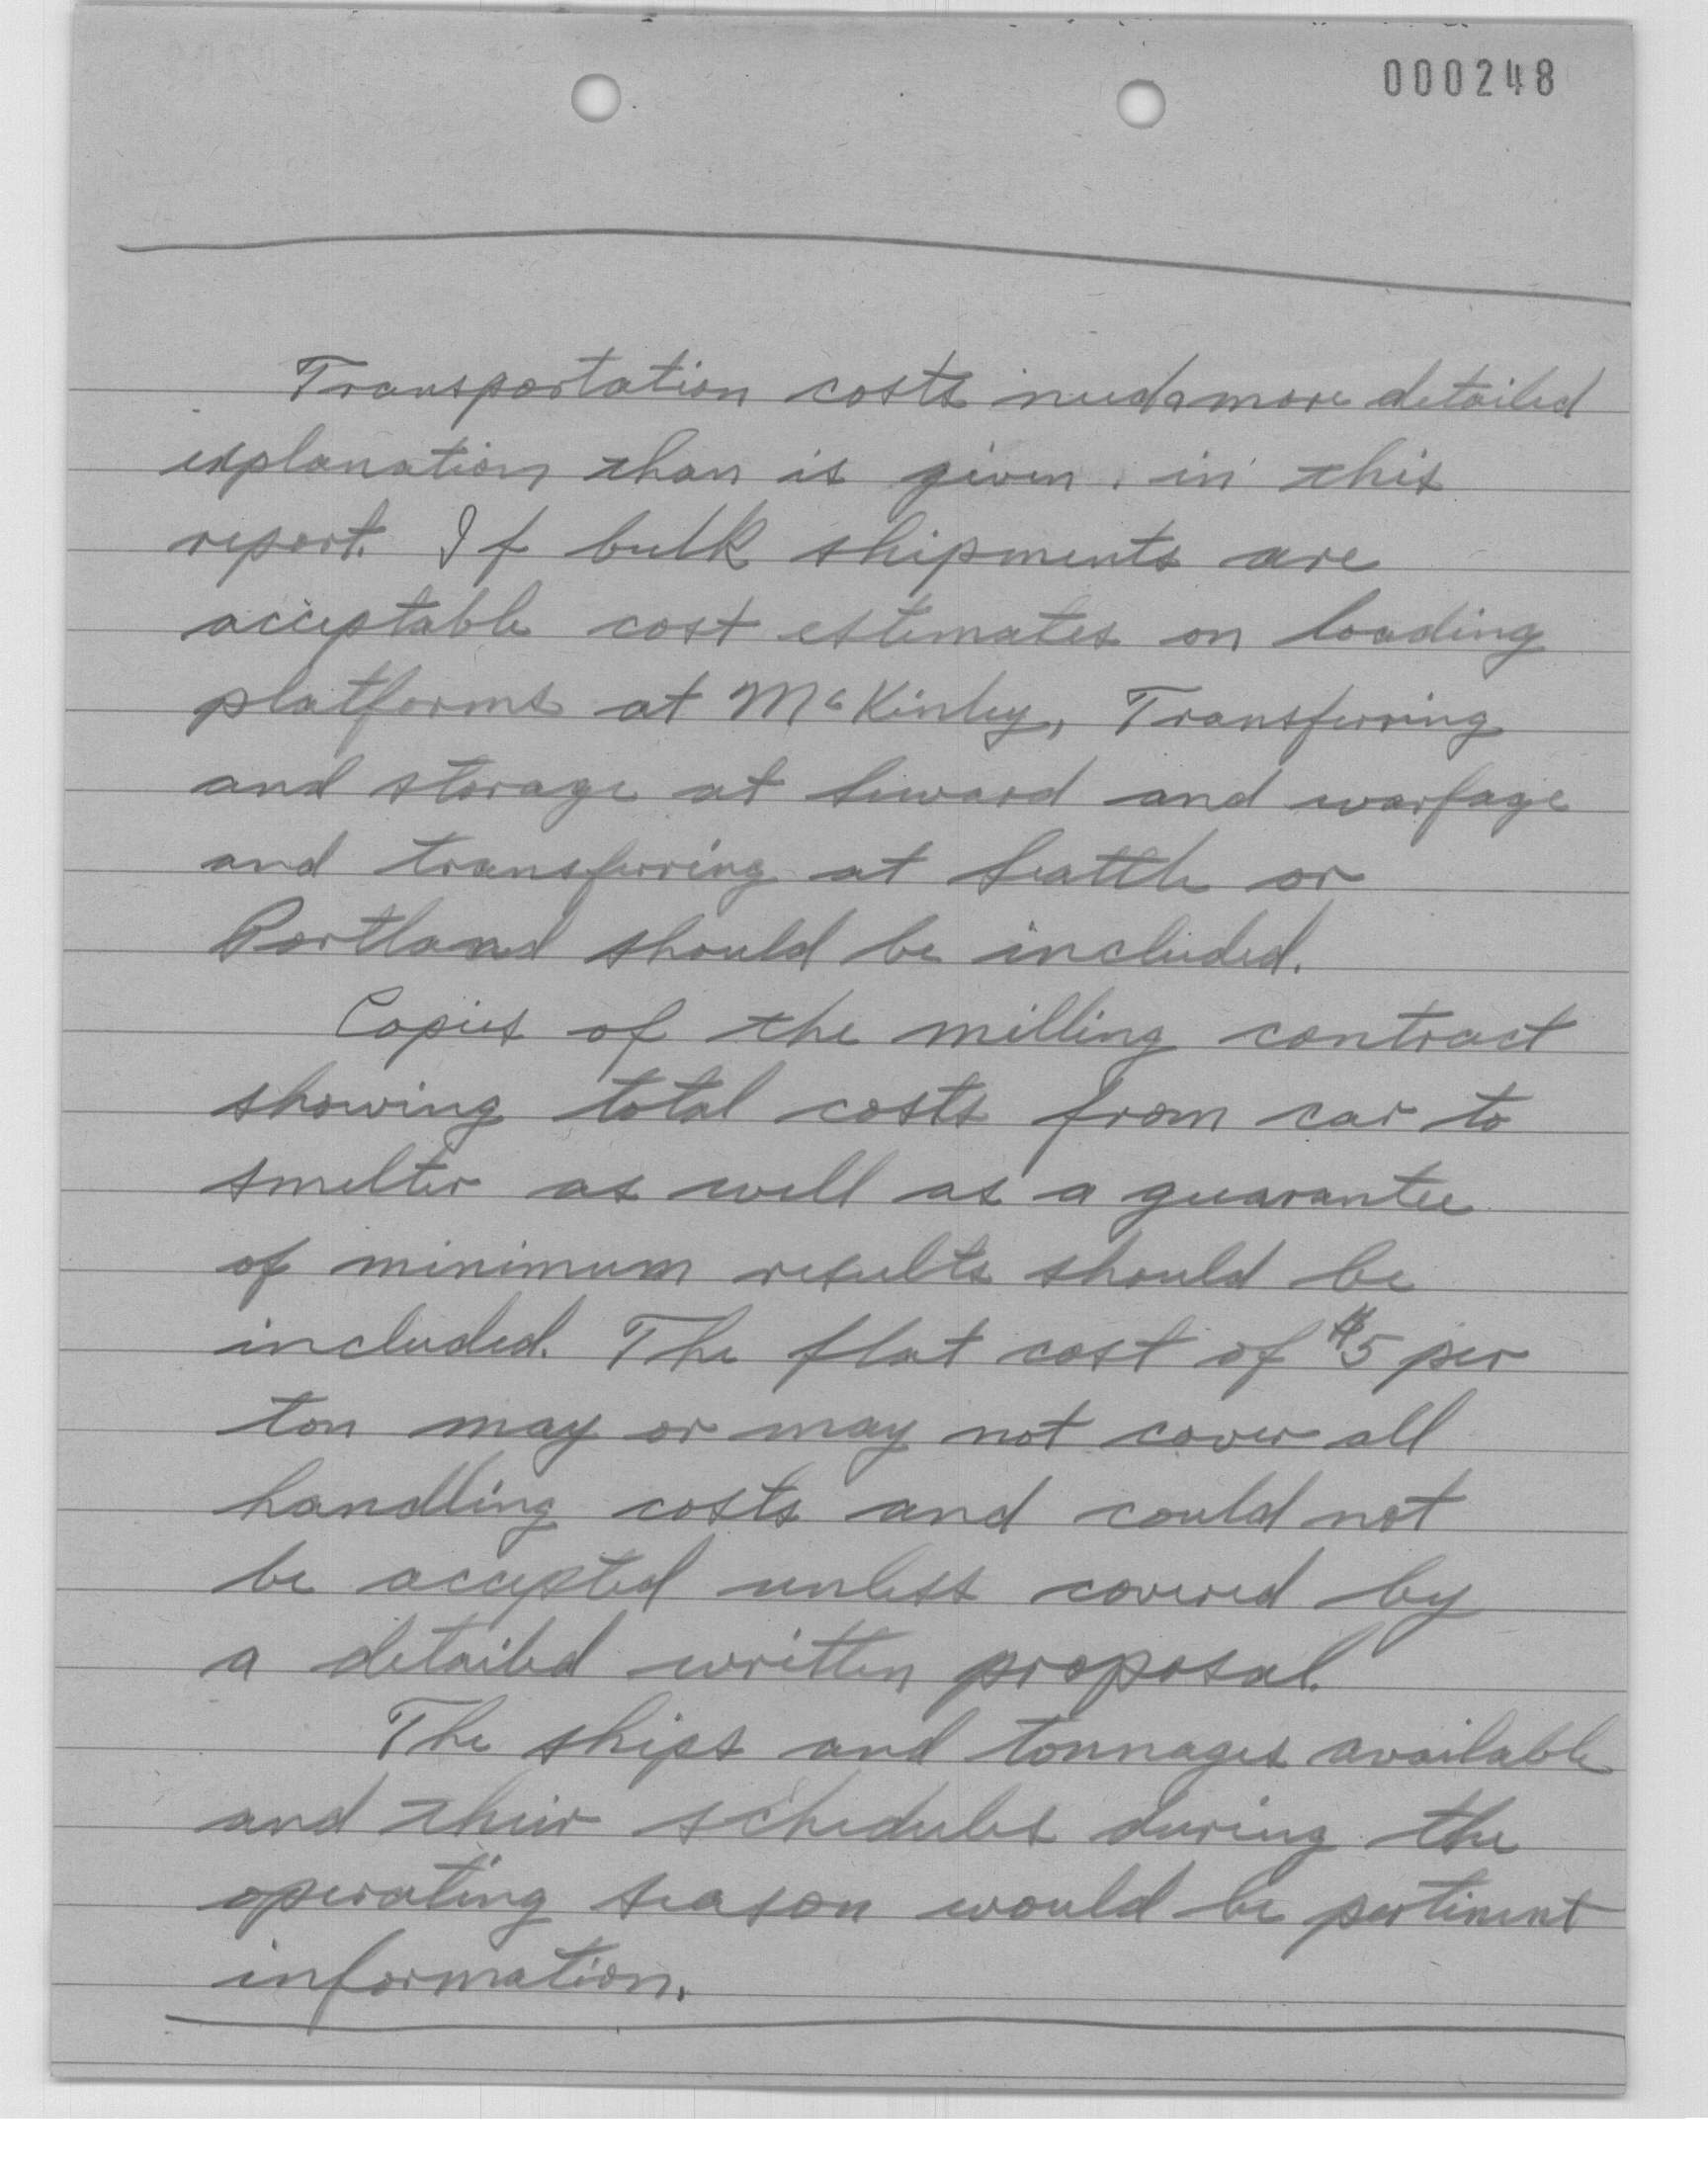 000248
Transportation costs need a more detailed
explanation than is given in this
report. If bulk shipments are
acceptable cost estimates on loading
platforms at McKinley, Transferring
and storage at Seward and warfage
and transferring at Seattle or
Portland should be included.
Copies of the milling contract
showing total costs from car to
smelter as well as a guarantee
of minimum results should be
included. The flat cost of $5 per
ton may or may not cover all
handling costs and could not
be accepted unless covered by
a detailed written proposal.
The ships and tonnages available
and their schedules during the
operating season would be pertinent
information.